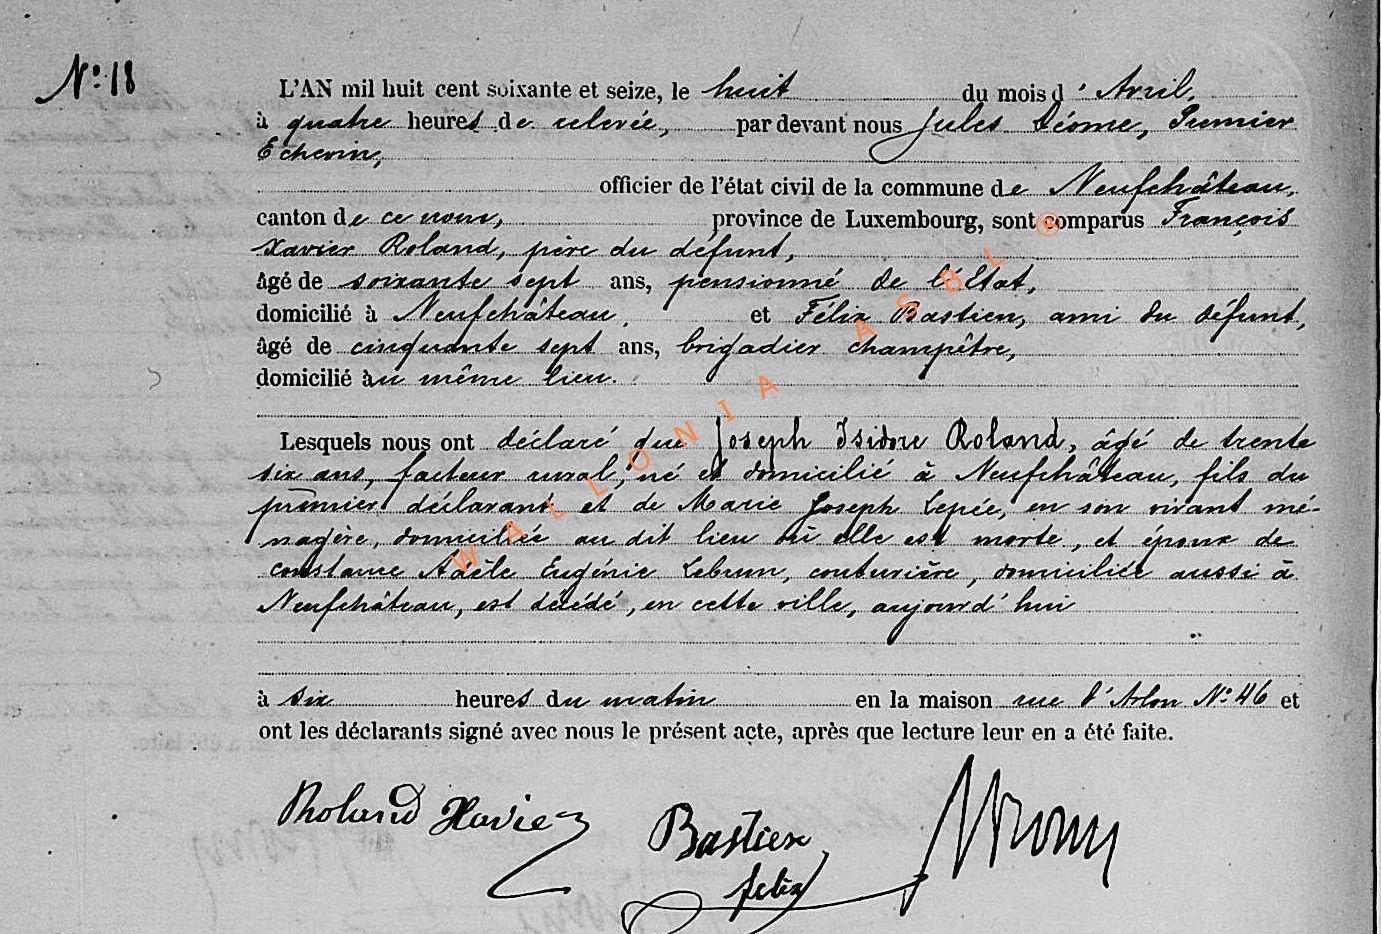 N° 18
L'AN mil huit cent soixante et seize, le huit du mois d'Avril,
à quatre heures de relevée, par devant nous Jules Déome, Premier
Echevin,
officier de l'état civil de la commune de Neufchâteau,
canton de ce nom, province de Luxembourg, sont comparus François
Xavier Roland, père du défunt,
âgé de soixante sept ans, pensionné de l'Etat,
domicilié à Neufchâteau, et Félix Bastien, ami du défunt,
âgé de cinquante sept ans, brigadier champêtre,
domicilié au même lieu.
Lesquels nous ont déclaré que Joseph Isidore Roland, âgé de trente
six ans, facteur rural, né et domicilié à Neufchâteau, fils du
premier déclarant et de Marie Joseph Lepée, en son vivant mé-
nagère, domiciliée au dit lieu où elle est morte, et époux de
constance Adèle Eugénie Lebrun, couturière, domiciliée aussi à
Neufchâteau, est décédé, en cette ville, aujourd'hui
à six heures du matin en la maison rue d'Arlon N° 46 et
ont les déclarants signé avec nous le présent acte, après que lecture leur en a été faite.
Roland Xavier
Bastien
felix
WALLONIA ASBL ©